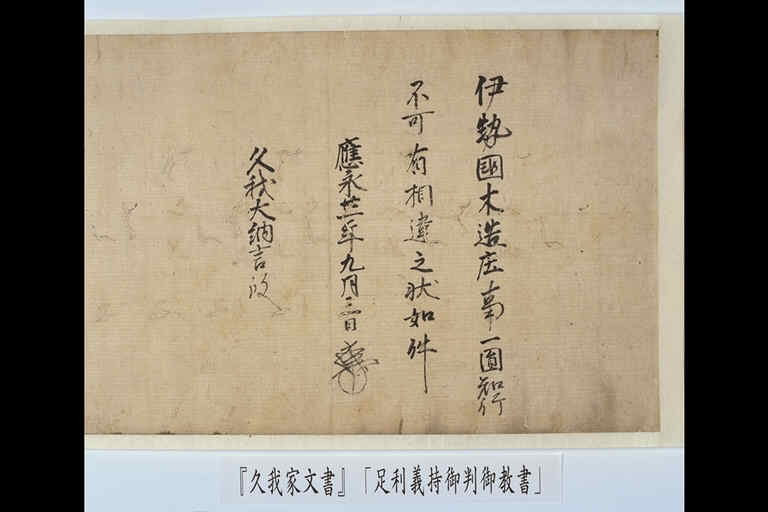 伊勢國木造庄事一圓知行
不可有相違之状如件
應永卅一年九月三日
久我大納言殿
『久我家文書』「足利義持御判御教書」